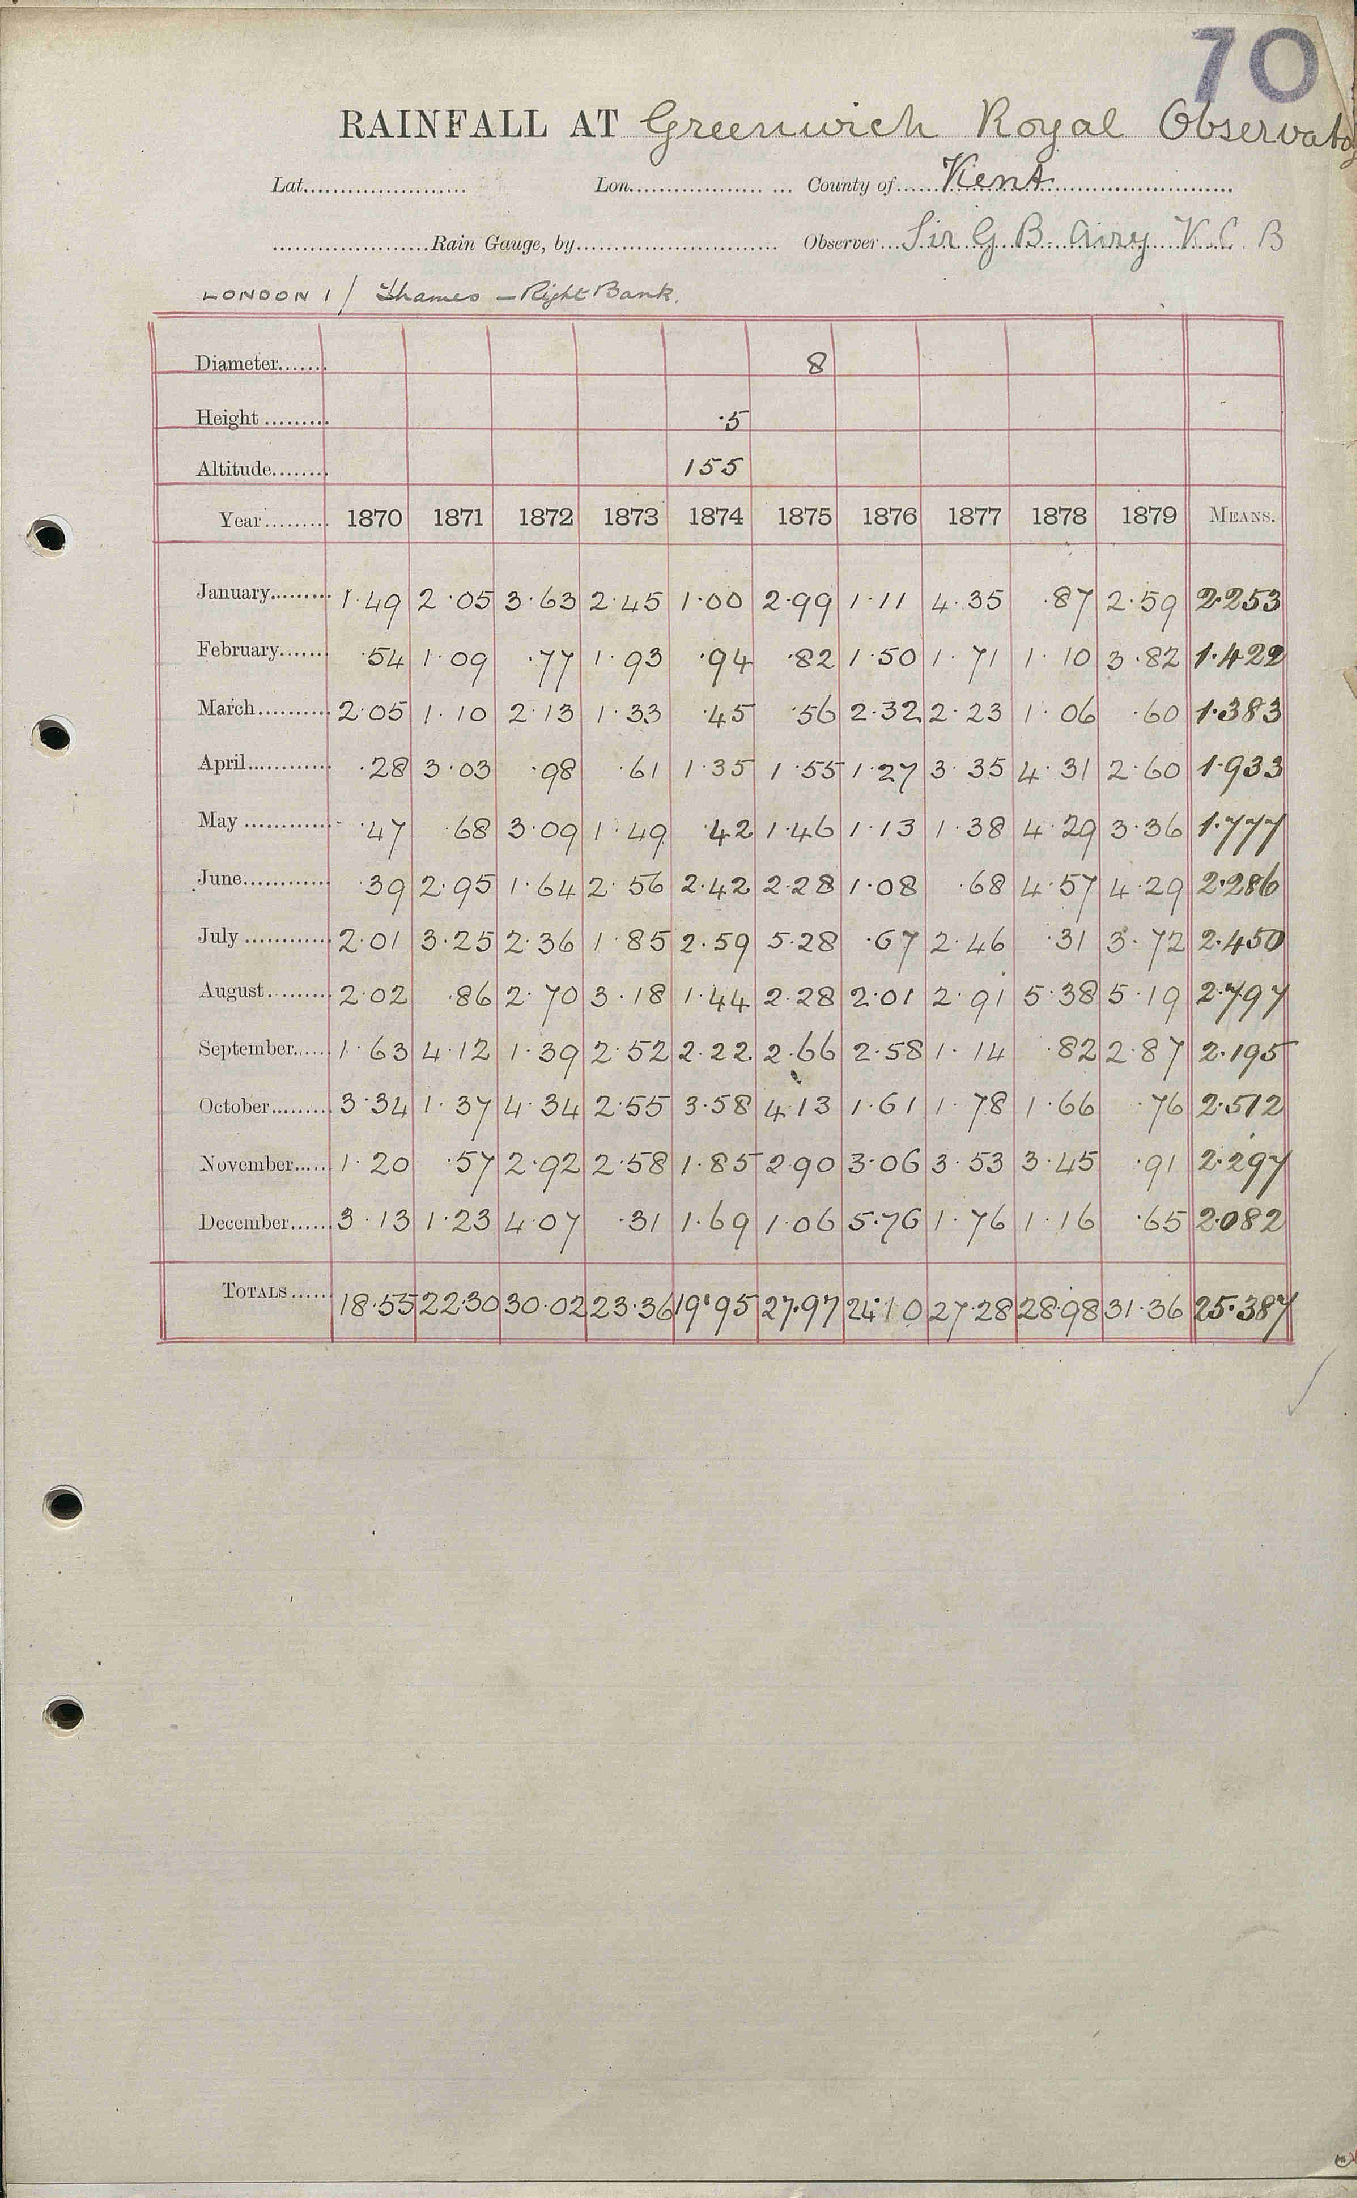 70
RAINFALL AT Greenwich Royal Observato
Lat. Lon. County of Kent
Rain Gauge, by Observer Sir G B Airy K.C.B
LONDON 1 / Thames – Right Bank.
Diameter 8
Height ·5
Altitude 155
Year 1870 1871 1872 1873 1874 1875 1876 1877 1878 1879 MEANS.
January 1·49 2·05 3·63 2·45 1·00 2·99 1·11 4·35 ·87 2·59 2·253
February ·54 1·09 ·77 1·93 ·94 ·82 1·50 1·71 1·10 3·82 1·422
March 2·05 1·10 2·13 1·33 ·45 ·56 2·32 2·23 1·06 ·60 1·383
April ·28 3·03 ·98 ·61 1·35 1·55 1·27 3·35 4·31 2·60 1·933
May ·47 ·68 3·09 1·49 ·42 1·46 1·13 1·38 4·29 3·36 1·777
June ·39 2·95 1·64 2·56 2·42 2·28 1·08 ·68 4·57 4·29 2·286
July 2·01 3·25 2·36 1·85 2·59 5·28 ·67 2·46 ·31 3·72 2·450
August 2·02 ·86 2·70 3·18 1·44 2·28 2·01 2·91 5·38 5·19 2·797
September 1·63 4·12 1·39 2·52 2·22 2·66 2·58 1·14 ·82 2·87 2·195
October 3·34 1·37 4·34 2·55 3·58 4·13 1·61 1·78 1·66 ·76 2·512
November 1·20 ·57 2·92 2·58 1·85 2·90 3·06 3·53 3·45 ·91 2·297
December 3·13 1·23 4·07 ·31 1·69 1·06 5·76 1·76 1·16 ·65 2·082
TOTALS 18·55 22·30 30·02 23·36 19·95 27·97 24·10 27·28 28·98 31·36 25·387